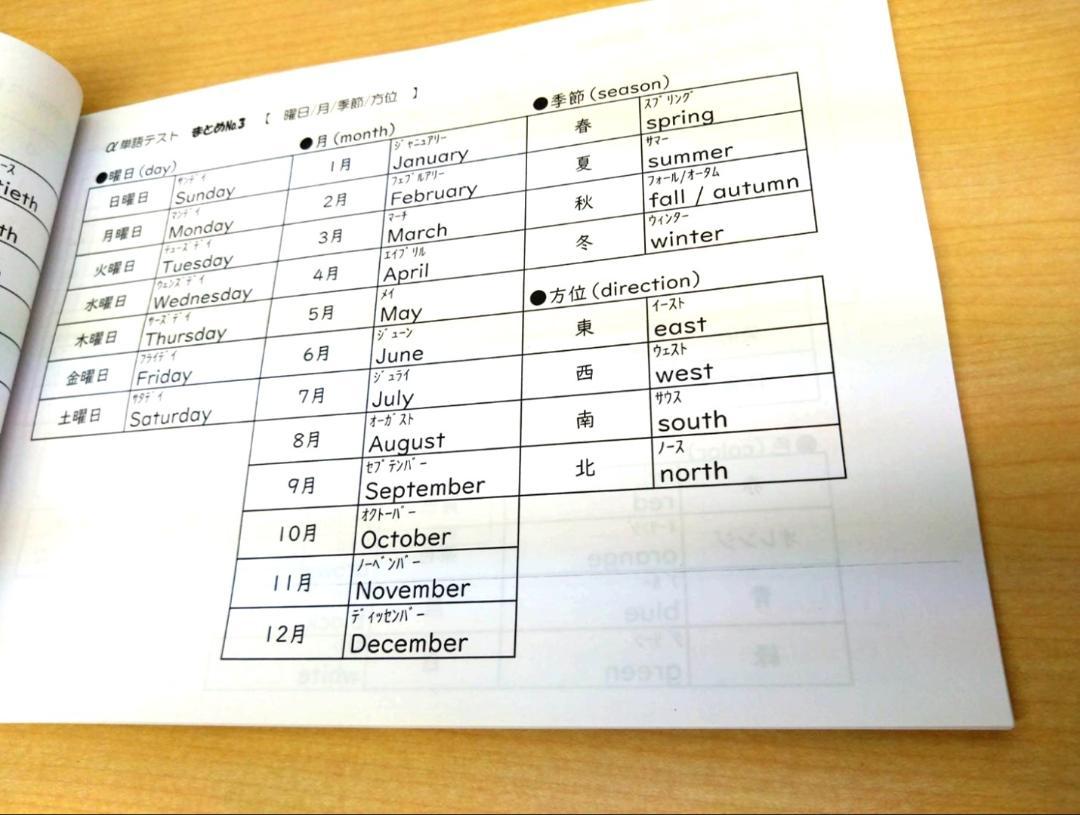 α単語テスト まとめNo.3 【 曜日/月/季節/方位 】
●曜日(day)
日曜日 サンデイ Sunday
月曜日 マンデイ Monday
火曜日 チューズデイ Tuesday
水曜日 ウェンズデイ Wednesday
木曜日 サーズデイ Thursday
金曜日 フライデイ Friday
土曜日 サタデイ Saturday
●月(month)
1月 ジャニュアリー January
2月 フェブルアリー February
3月 マーチ March
4月 エイプリル April
5月 メイ May
6月 ジューン June
7月 ジュライ July
8月 オーガスト August
9月 セプテンバー September
10月 オクトーバー October
11月 ノーベンバー November
12月 ディッセンバー December
●季節(season)
春 スプリング spring
夏 サマー summer
秋 フォール/オータム fall / autumn
冬 ウィンター winter
●方位(direction)
東 イースト east
西 ウェスト west
南 サウス south
北 ノース north